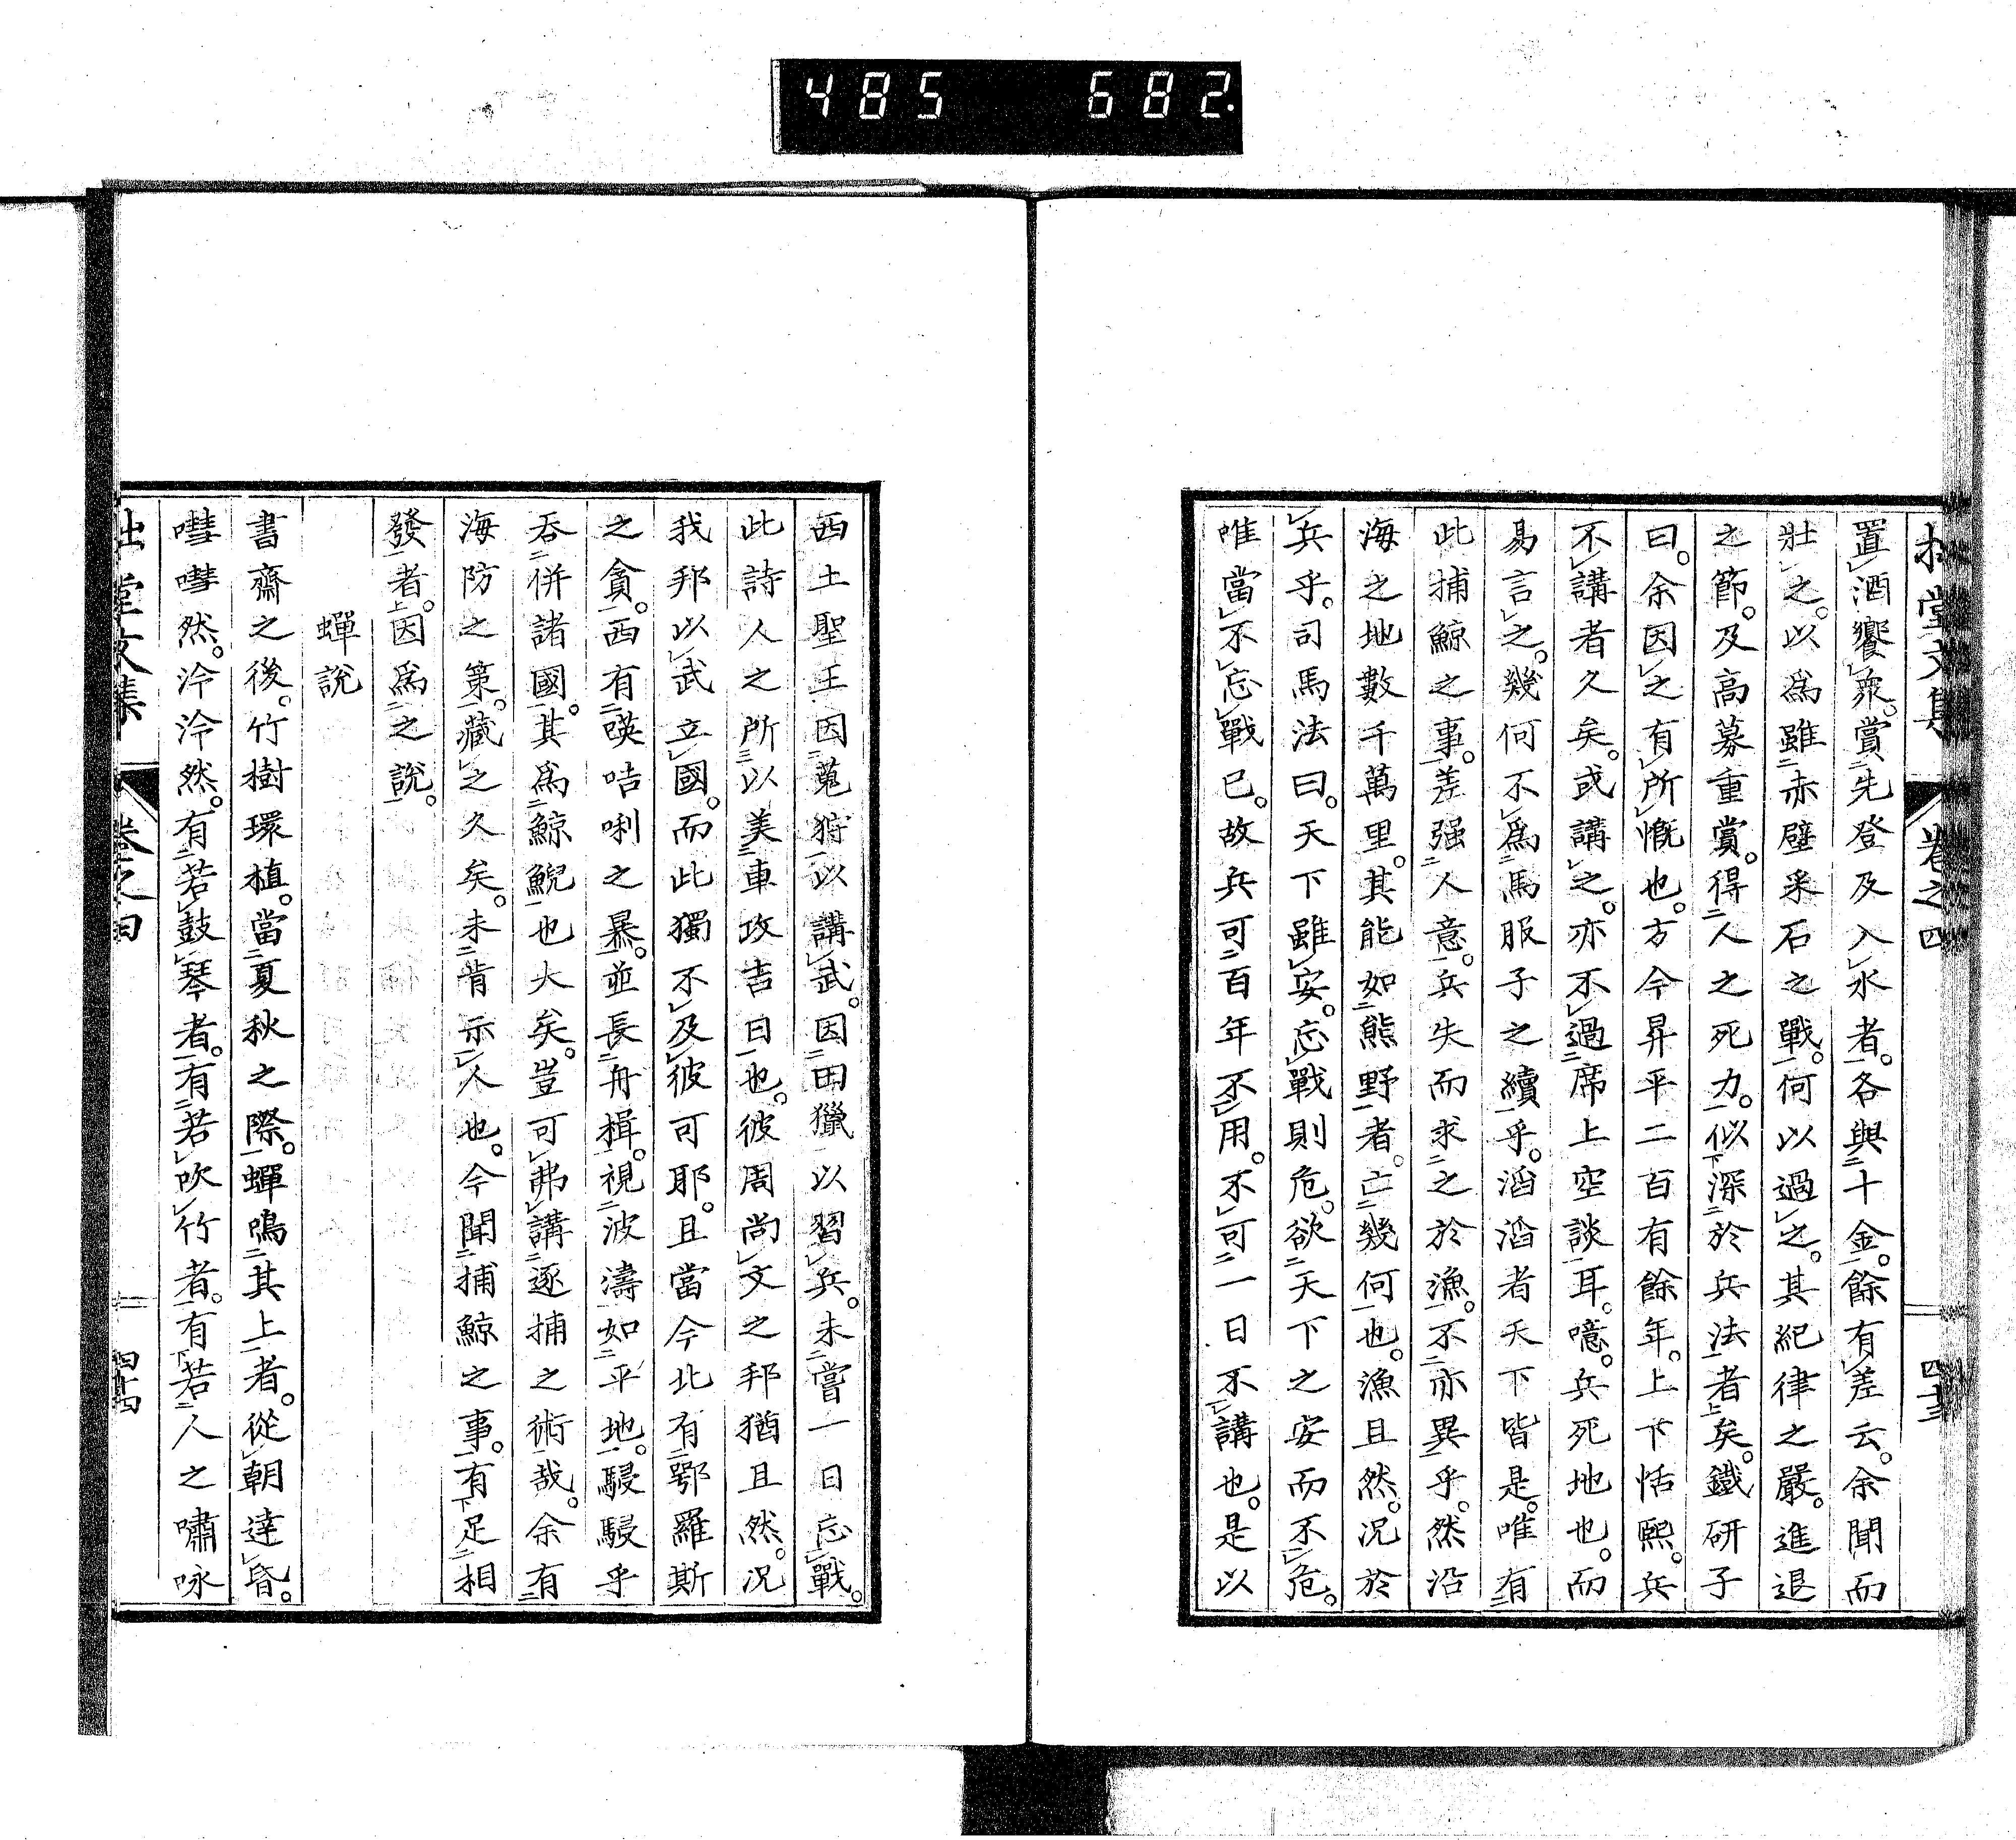 485 682.
拙堂文集 卷之四 四十三
置酒饗衆。賞先登及入水者。各與十金。餘有差云。余聞而
壯之。以爲雖赤壁采石之戰。何以過之。其紀律之嚴。進退
之節。及高募重賞。得人之死力。似深於兵法者矣。鐵研子
曰。余因之有所慨也。方今昇平二百有餘年。上下恬熙。兵
不講者久矣。或講之。亦不過席上空談耳。噫。兵死地也。而
易言之。幾何不爲馬服子之續乎。滔滔者天下皆是。唯有
此捕鯨之事。差强人意。兵失而求之於漁。不亦異乎。然沿
海之地數千萬里。其能如熊野者。亡幾何也。漁且然。況於
兵乎。司馬法曰。天下雖安。忘戰則危。欲天下之安而不危。
唯當不忘戰已。故兵可百年不用。不可一日不講也。是以
西土聖王因蒐狩以講武。因田獵以習兵。未嘗一日忘戰。
此詩人之所以美車攻吉日也。彼周尚文之邦猶且然。況
我邦以武立國。而此獨不及彼可耶。且當今北有鄂羅斯
之貪。西有暎咭唎之暴。並長舟楫。視波濤如平地。駸駸乎
吞併諸國。其爲鯨鯢也大矣。豈可弗講逐捕之術哉。余有
海防之策。藏之久矣。未肯示人也。今聞捕鯨之事。有足相
發者。因爲之說。
蟬說
書齋之後。竹樹環植。當夏秋之際。蟬鳴其上者。從朝達昏。
嘒嘒然。泠泠然。有若鼓琴者。有若吹竹者。有若人之嘯咏
拙堂文集 卷之四 四十四